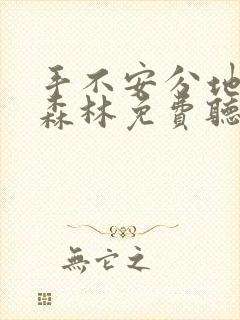 手不安分地
森林免费聽
無它之